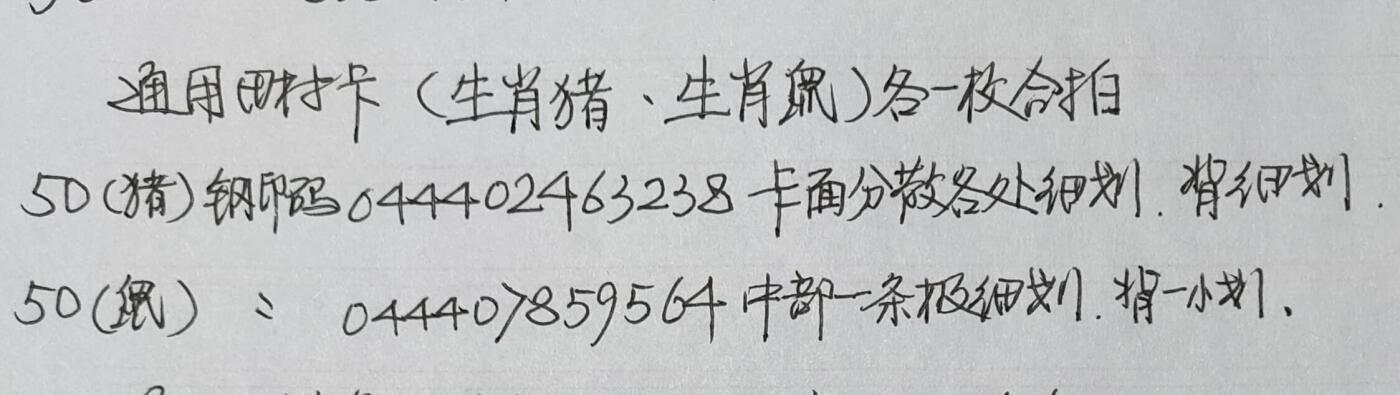 通用田村卡（生肖猪、生肖鼠）各一枚合拍
50（猪）钢印码044402463238 卡面分散各处细划．背细划．
50（鼠）〃 044407859564 中部一条极细划．背一小划、